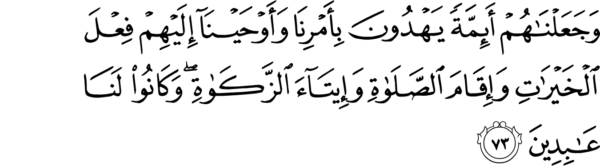 وَجَعَلْنَـٰهُمْ أَئِمَّةً يَهْدُونَ بِأَمْرِنَا وَأَوْحَيْنَآ إِلَيْهِمْ فِعْلَ
ٱلْخَيْرَٰتِ وَإِقَامَ ٱلصَّلَوٰةِ وَإِيتَآءَ ٱلزَّكَوٰةِ ۖ وَكَانُوا۟ لَنَا
عَـٰبِدِينَ ٧٣